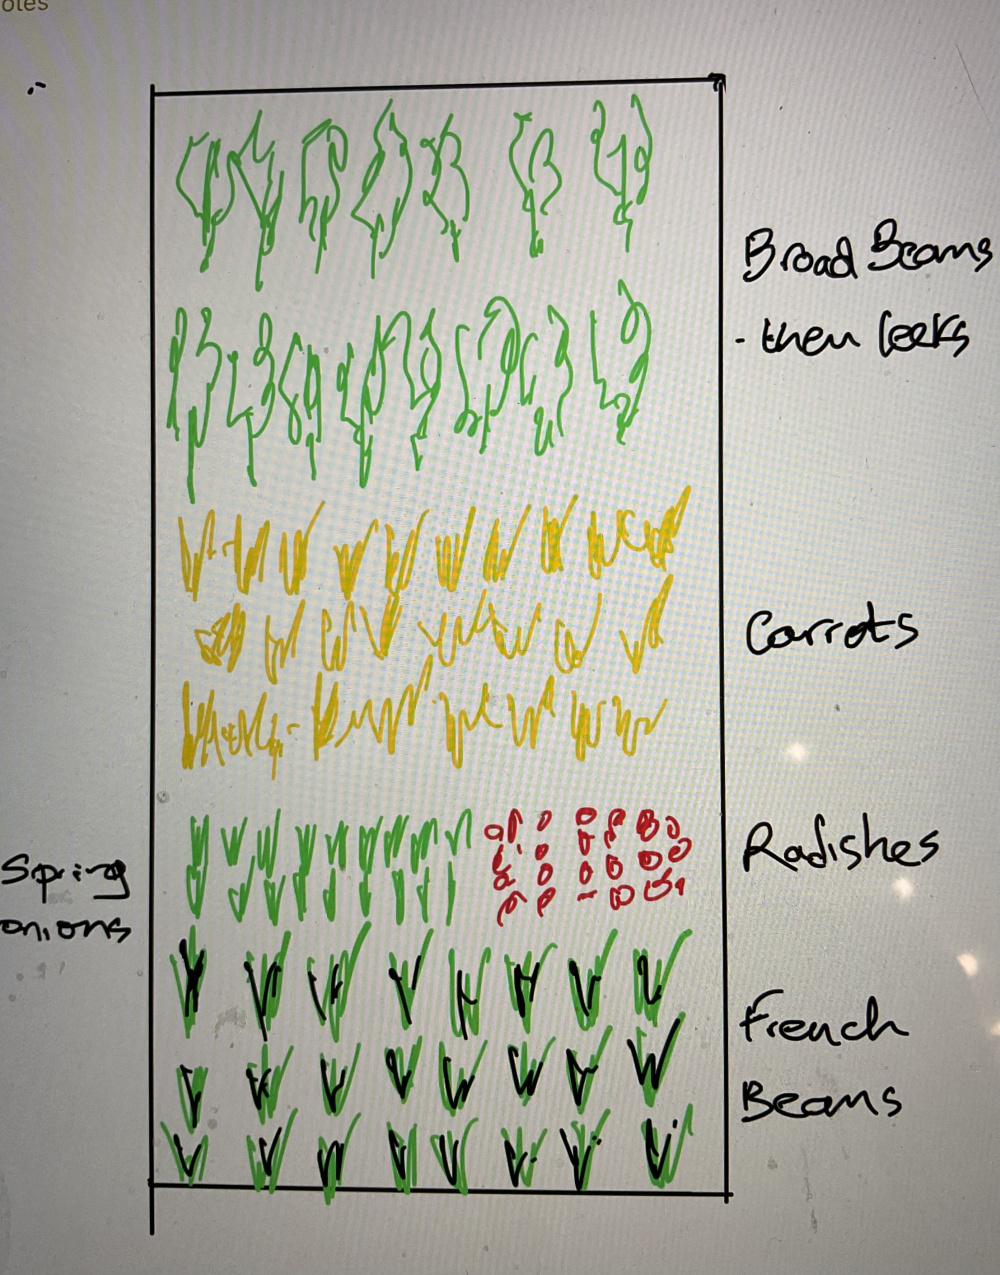 otes
Broad Beans
- then leeks
Carrots
Spring
onions
Radishes
French
Beans